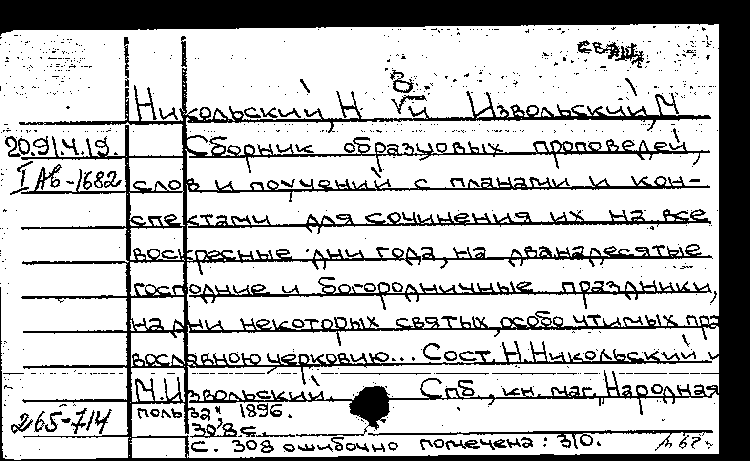 Никольский, Н и Извольский, М
20.9/4.19. Сборник образцовых проповедей,
I Ав-1682 слов и поучений с планами и кон-
спектами для сочинения их на все
воскресные дни года, на дванадесятые
господние и богородничные праздники,
на дни некоторых святых, особо чтимых пра
вославною церковию... Сост. Н. Никольский и
М. Извольский. Спб., кн. маг. Народная
265-714 польза", 1896.
308 с.
с. 308 ошибочно помечена: 310.